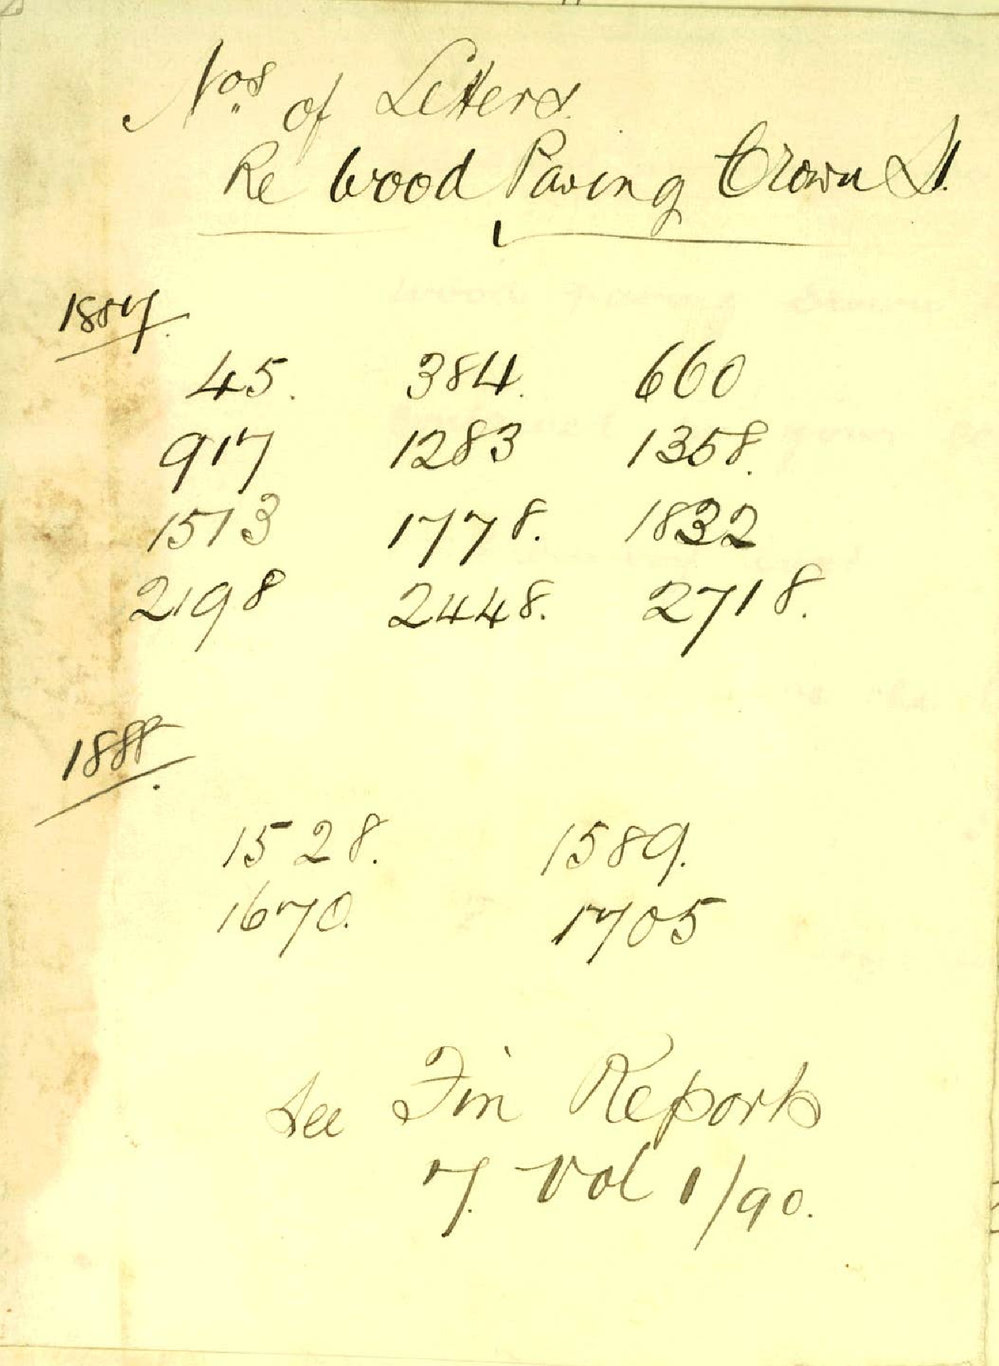 Nos of Letters.
Re Wood Paving Crown St.
1887.
45. 384. 660
917 1283 1358.
1513 1778. 1832
2198 2448. 2718.
1888.
1528. 1589.
1670. 1705
See Fin Reports
7. Vol 1/90.